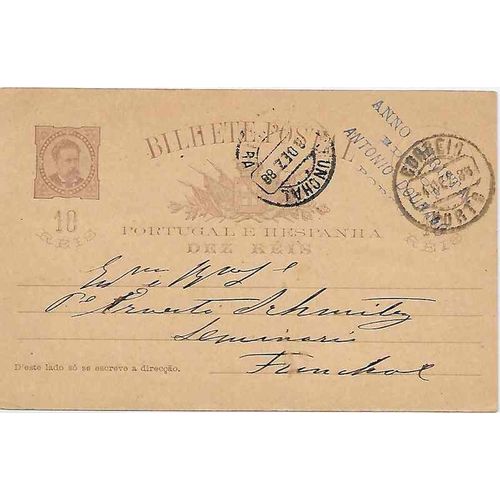 BILHETE POSTAL
10
RÉIS
PORTUGAL E HESPANHA
DEZ RÉIS
RÉIS
FUNCHAL
DEZ 88
ANNO
ANTONIO
CORREIO
PORTO
Pe Ernesto Schmitz
Seminario
Funchal
D'este lado só se escreve a direcção.